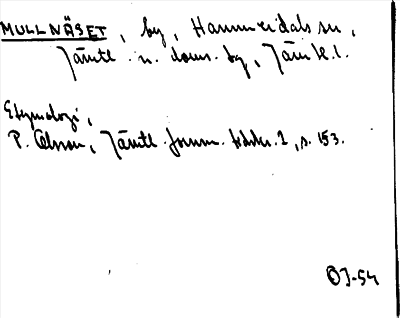 MULLNÄSET, by, Hammerdals sn,
Jämtl. n. doms. by, Jämtl. l.
Etymologi,
P. Olsson, Jämtl. fornm. tidskr. 1, s. 153.
OJ-54